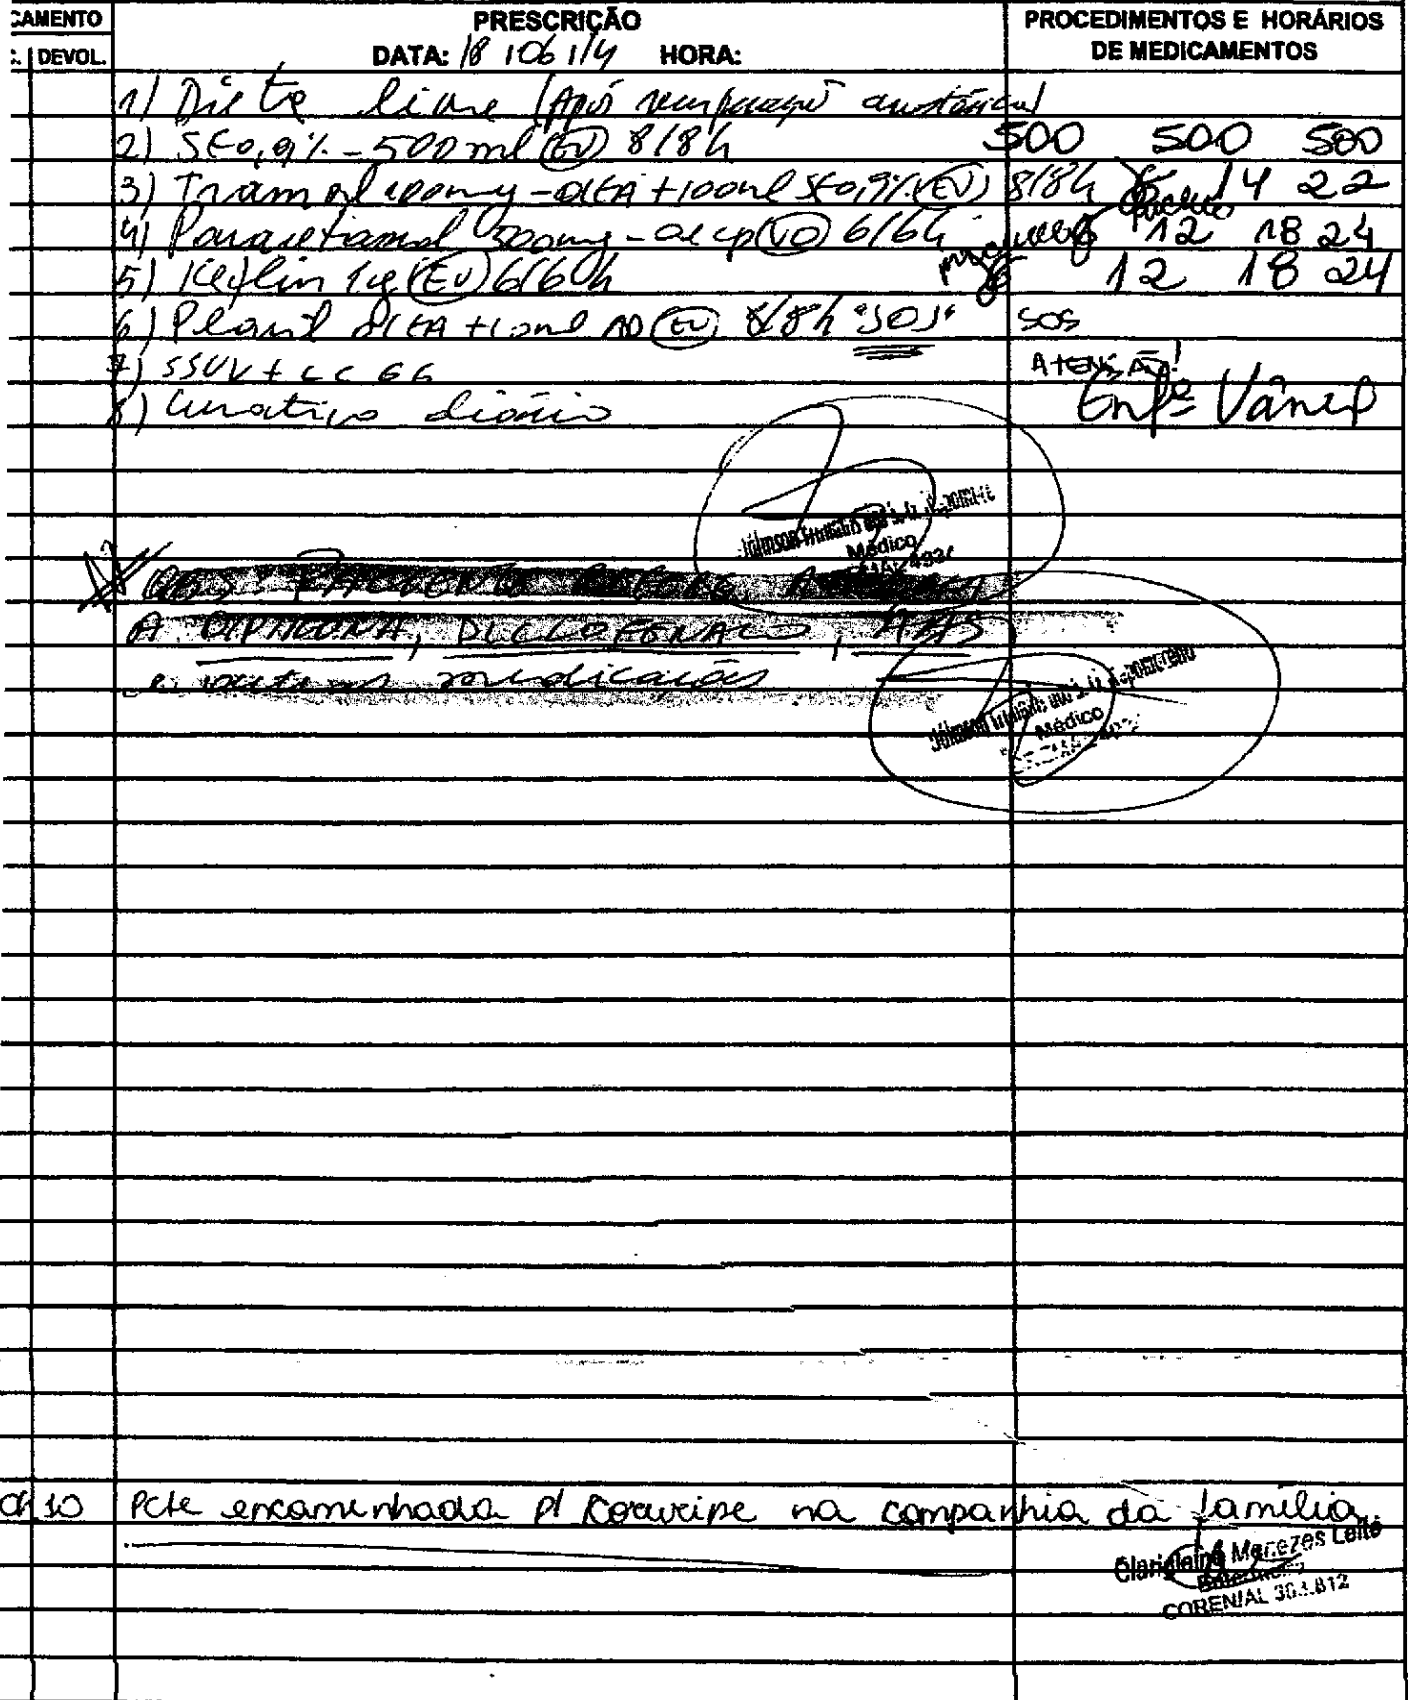 CAMENTO PRESCRIÇÃO PROCEDIMENTOS E HORÁRIOS
DEVOL. DATA: 18/06/14 HORA: DE MEDICAMENTOS
1) Dieta livre (Após anestésica)
2) SF0,9% - 500ml (EV) 8/8h 500 500 500
3) Tramal 100mg - 01FA + 100ml SF0,9% (EV) 8/8h 14 22
4) Paracetamol 500mg - 01 cp (VO) 6/6h 12 18 24
5) Keflin 1g (EV) 6/6h 12 18 24
6) Plasil 01FA + 10ml AD (EV) 8/8h "SOS" SOS
7) SSVV + CCGG ATENSÃO!
8) Curativo diário Enfª Vânia
Médico
OBS: PACIENTE REFERE ALERGIA
A DIPIRONA, DICLOFENACO, AAS
e outras medicações
Médico
10 Pcte encaminhada p/ Coruripe na companhia da família
Menezes Leite
COREN/AL